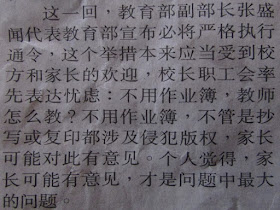 这一回，教育部副部长张盛
闻代表教育部宣布必将严格执行
通令，这个举措本来应当受到校
方和家长的欢迎，校长职工会率
先表达忧虑：不用作业簿，教师
怎么教？不用作业簿，不管是抄
写或复印都涉及侵犯版权，家长
可能对此有意见。个人觉得，家
长可能有意见，才是问题中最大
的问题。